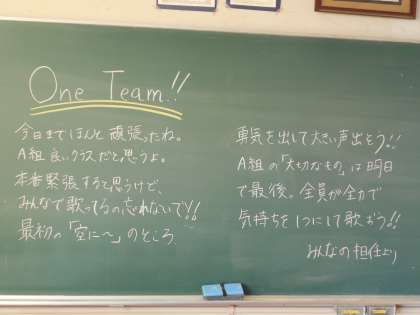 One Team!!
今日までほんと頑張ったね。
A組良いクラスだと思うよ。
本番緊張すると思うけど、
みんなで歌ってるの忘れないで!!
最初の「空に〜」のところ
勇気を出して大きい声出そう!!
A組の「大切なもの」は明日
で最後。全員が全力で
気持ちを1つにして歌おう!!
みんなの担任より